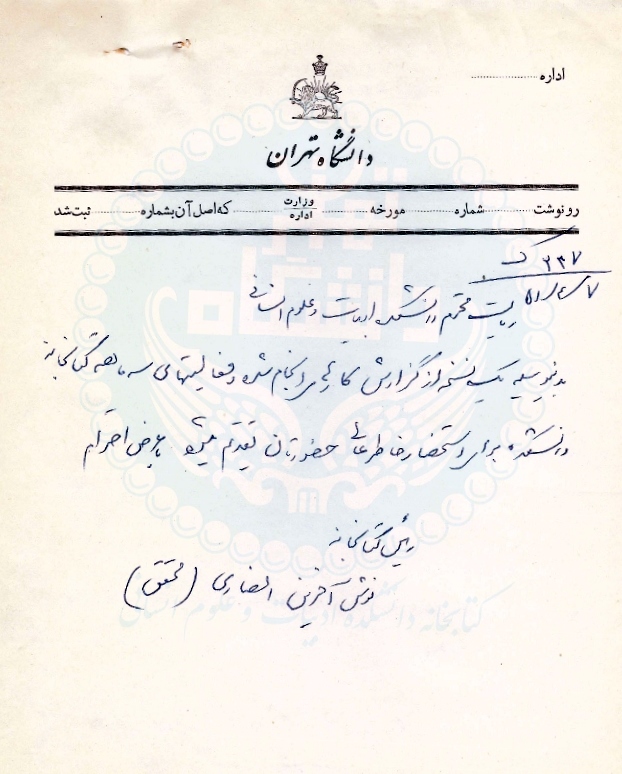 اداره ....................
دانشگاه تهران
رونوشت .............. شماره .............. مورخه .............. وزارت اداره .............. که اصل آن بشماره .............. ثبت شد
۶۳۷ ک
۵۱/۴/۷
ریاست محترم دانشکده ادبیات و علوم انسانی
بدینوسیله یک نسخه از گزارش کارهای انجام شده و فعالیتهای سه ماهه کتابخانه
دانشکده برای استحضار خاطر عالی حضورتان تقدیم میشود با عرض احترام
رئیس کتابخانه
نوش آفرین انصاری (محقق)
کتابخانه دانشکده ادبیات و علوم انسانی